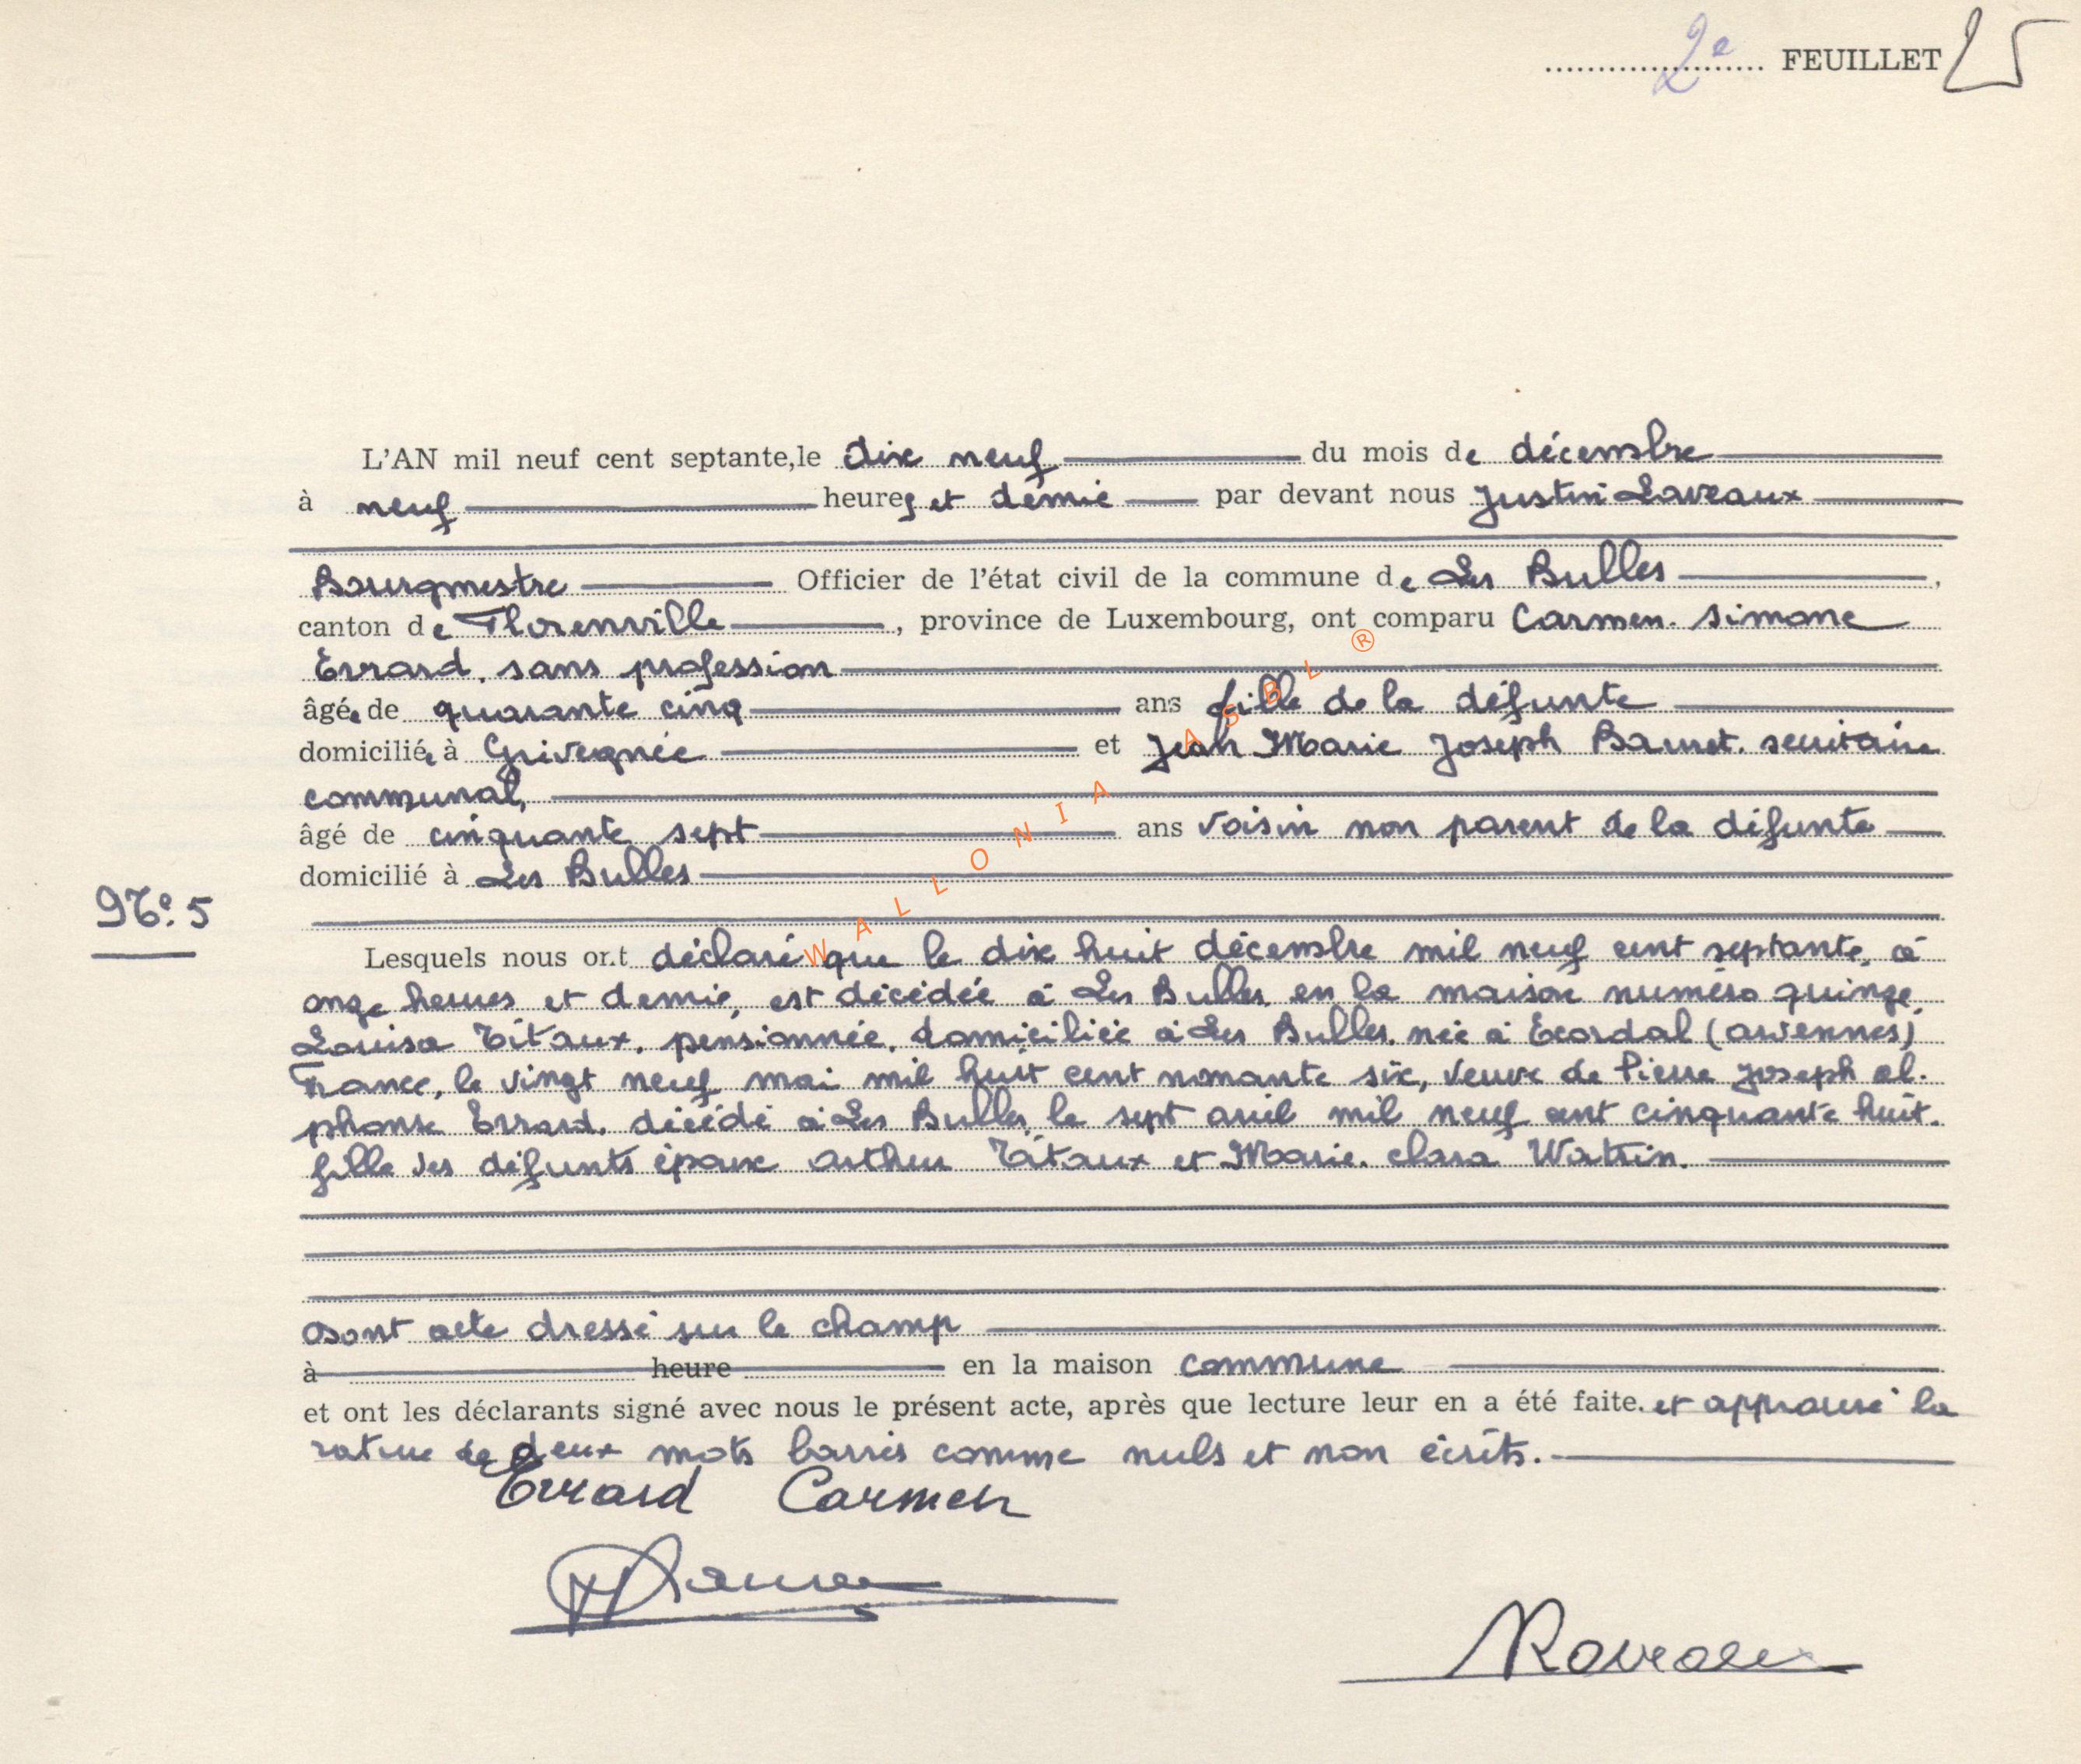 2e FEUILLET 25
L'AN mil neuf cent septante, le dix neuf du mois de décembre
à neuf heures et demie par devant nous Justin Laveaux
Bourgmestre Officier de l'état civil de la commune de Les Bulles,
canton de Florenville, province de Luxembourg, ont comparu Carmen. Simone
Errard, sans profession
âgée de quarante cinq ans fille de la défunte
domiciliée à Grivegnée et Jean Marie Joseph secrétaire
communal,
âgé de cinquante sept ans voisin non parent de la défunte
domicilié à Les Bulles
N° 5
Lesquels nous ont déclaré que le dix huit décembre mil neuf cent septante, à
onze heures et demie, est décédée à Les Bulles en la maison numéro quinze,
Louisa Titaux, pensionnée, domiciliée à Les Bulles, née à Ecordal (ardennes)
France, le vingt neuf mai mil huit cent nonante six, veuve de Pierre Joseph al-
phonse Errard, décédé à Les Bulles, le sept avril mil neuf cent cinquante huit.
fille des défunts époux arthur Titaux et Marie. clara Watrin.
Dont acte dressé sur le champ
à heure en la maison commune
et ont les déclarants signé avec nous le présent acte, après que lecture leur en a été faite. et approuvé la
rature de deux mots barrés comme nuls et non écrits.
Errard Carmen
WALLONIA ASBL ®